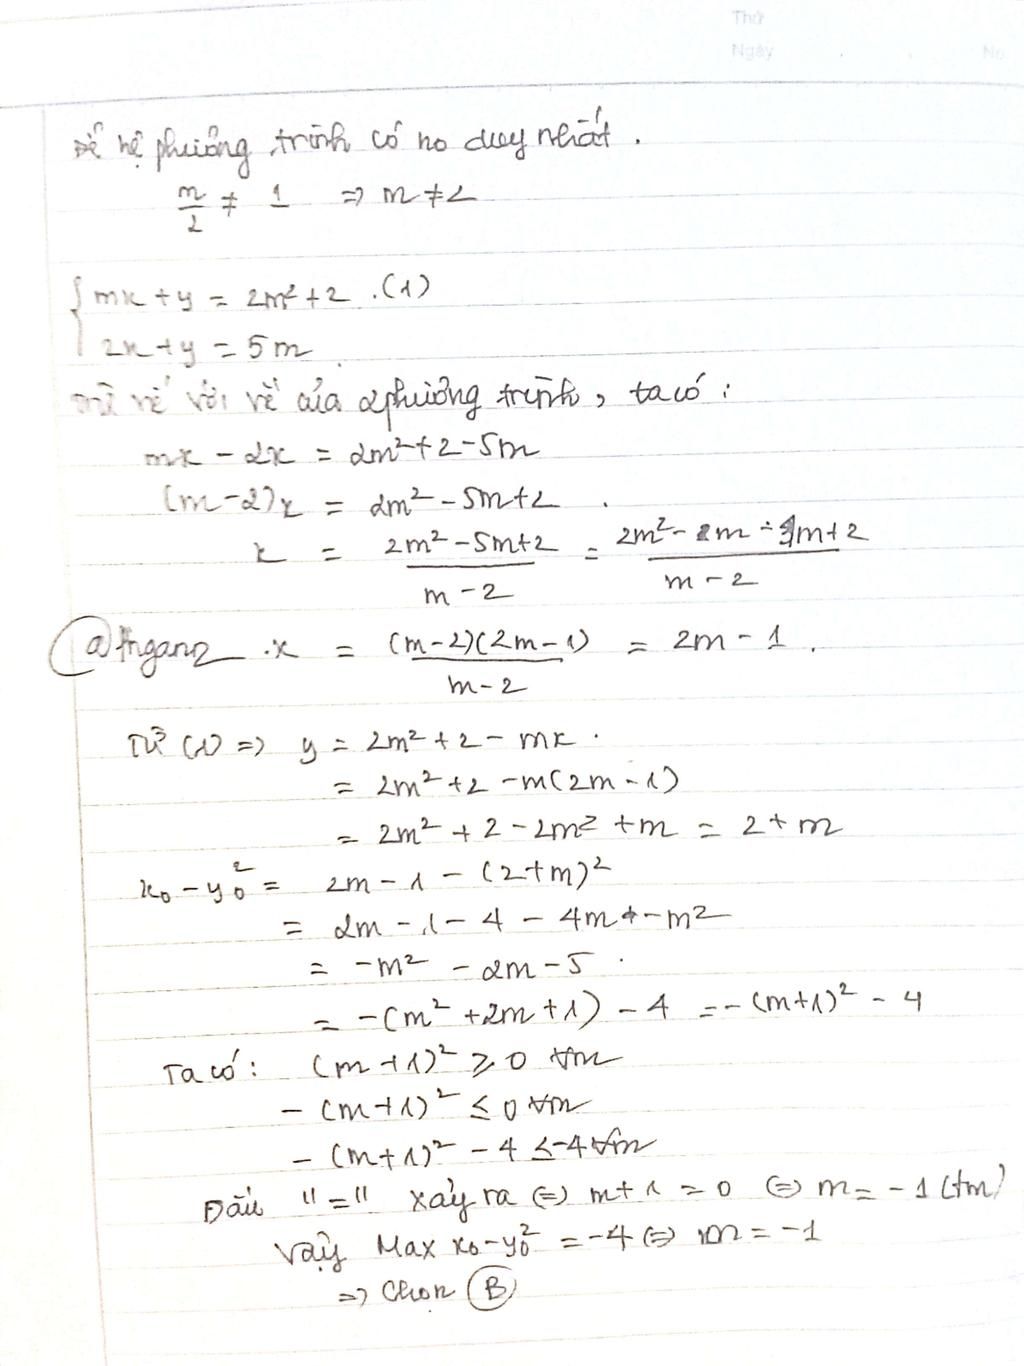 Thứ
Ngày . . No.
Để hệ phương trình có no duy nhất.
m/2 ≠ 1 => m ≠ 2
{ mx + y = 2m² + 2 .(1)
2x + y = 5m
Trừ vế với vế của 2 phương trình, ta có:
mx - 2x = 2m² + 2 - 5m
(m-2)x = 2m² - 5m + 2 .
x = (2m² - 5m + 2)/(m - 2) = (2m² - m - m + 2)/(m - 2)
.x = (m-2)(2m-1)/(m-2) = 2m - 1 .
Từ (1) => y = 2m² + 2 - mx .
= 2m² + 2 - m(2m - 1)
= 2m² + 2 - 2m² + m = 2 + m
x₀ - y₀² = 2m - 1 - (2+m)²
= 2m - 1 - 4 - 4m - m²
= -m² - 2m - 5 .
= -(m² + 2m + 1) - 4 = -(m+1)² - 4
Ta có: (m+1)² ≥ 0 ∀m
- (m+1)² ≤ 0 ∀m
- (m+1)² - 4 ≤ -4 ∀m
Dấu "=" xảy ra <=> m + 1 = 0 <=> m = -1 (tm)
Vậy Max x₀ - y₀² = -4 <=> m = -1
=> Chọn B